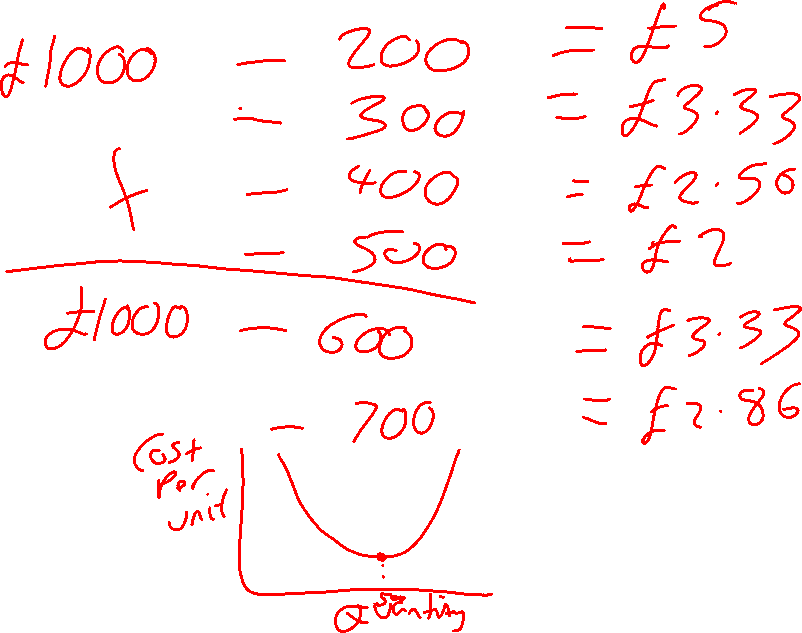 £1000 - 200 = £5
- 300 = £3.33
+ - 400 = £2.50
- 500 = £2
£1000 - 600 = £3.33
- 700 = £2.86
Cost
per
unit
Quantity